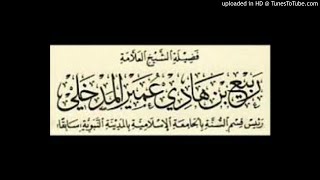 uploaded in HD @ TunesToTube.com
فَضِيلَةِ الشَّيْخِ العَلَّامَةِ
رَبِيع بْنِ هَادِي عُمَيْر المَدْخَلِي
رَئِيسِ قِسْمِ السُّنَّةِ بِالجَامِعَةِ الإِسْلَامِيَّةِ بِالمَدِينَةِ النَّبَوِيَّةِ سَابِقًا